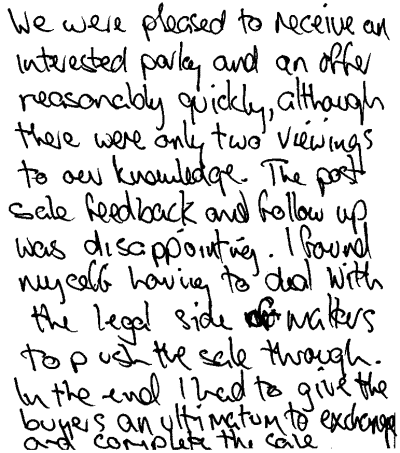 We were pleased to receive an
interested party and an offer
reasonably quickly, although
there were only two viewings
to our knowledge. The post
sale feedback and follow up
was disappointing. I found
myself having to deal with
the legal side of matters
to push the sale through.
In the end I had to give the
buyers an ultimatum to exchange
and complete the sale